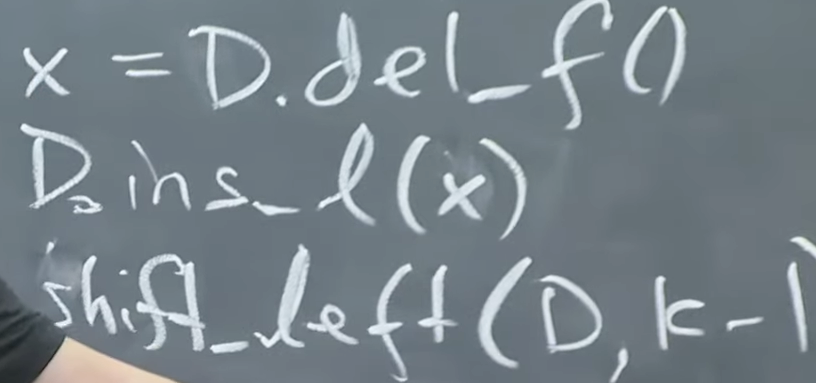 x = D.del_f()
D.ins_l(x)
shift_left(D, k-1)